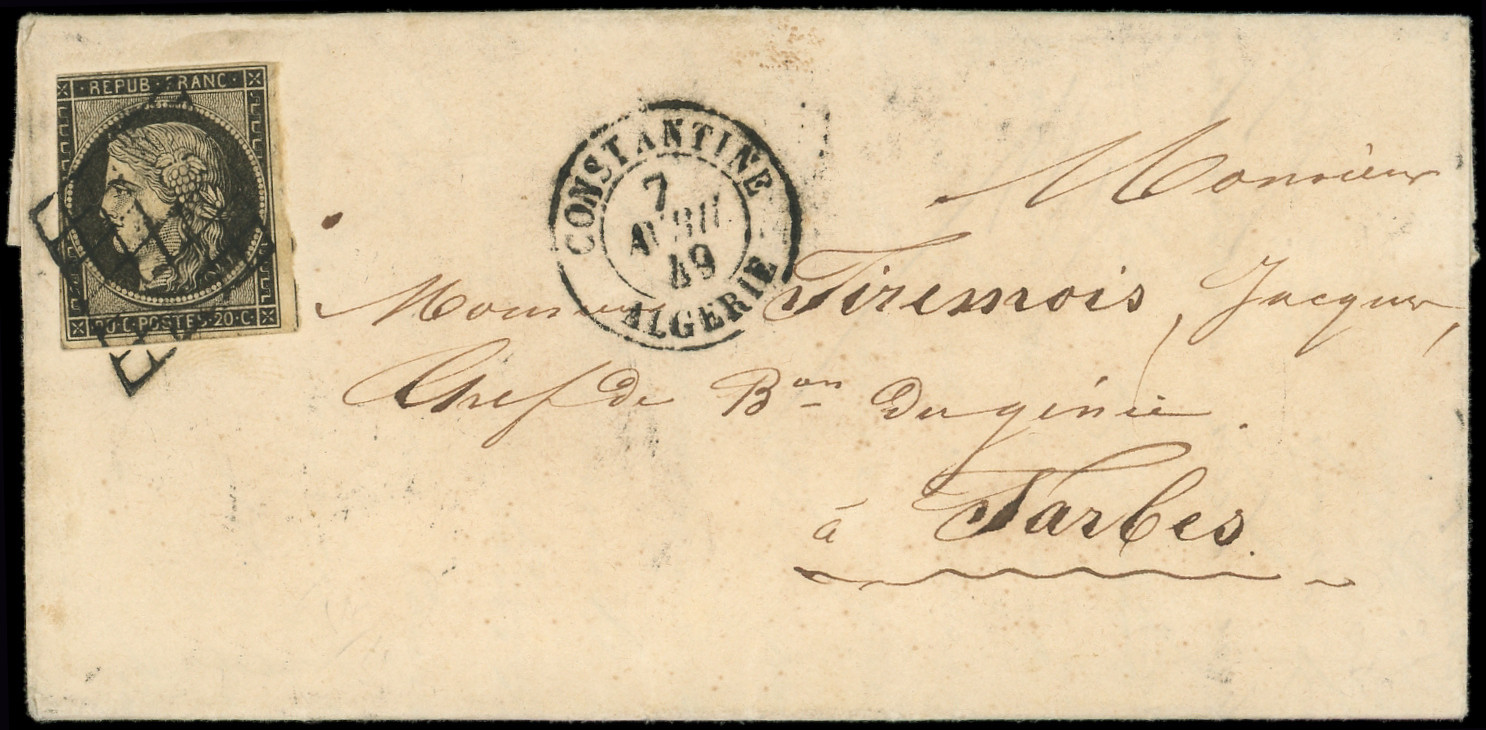 REPUB·FRANC·
20·C·POSTES·20·C·
CONSTANTINE
7
AVRIL
49
ALGERIE
Monsieur
Monsieur Tiremois, Jacques,
Chef de Bᵒⁿ du génie.
à Tarbes.